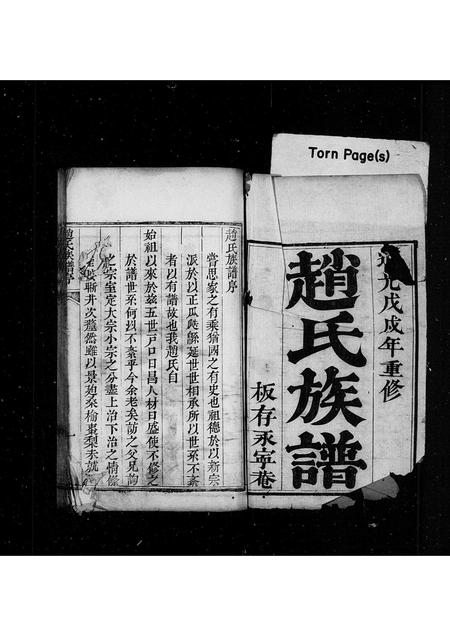 Torn Page(s)
道光戊戌年重修
趙氏族譜
板存永寧巷
趙氏族譜序
嘗思家之有乘猶國之有史也祖德於以新宗
派於以正瓜瓞緜延世世相承所以世系不紊
者以有譜故也我趙氏自
始祖以來於茲五世戶口日昌人材日盛使不修之
於譜世系何以不紊乎今余老矣訪之父兄詢
之宗室定大宗小宗之分盡上治下治之情條
井次 然雖以景 桑榆棗梨未就
趙氏族譜序